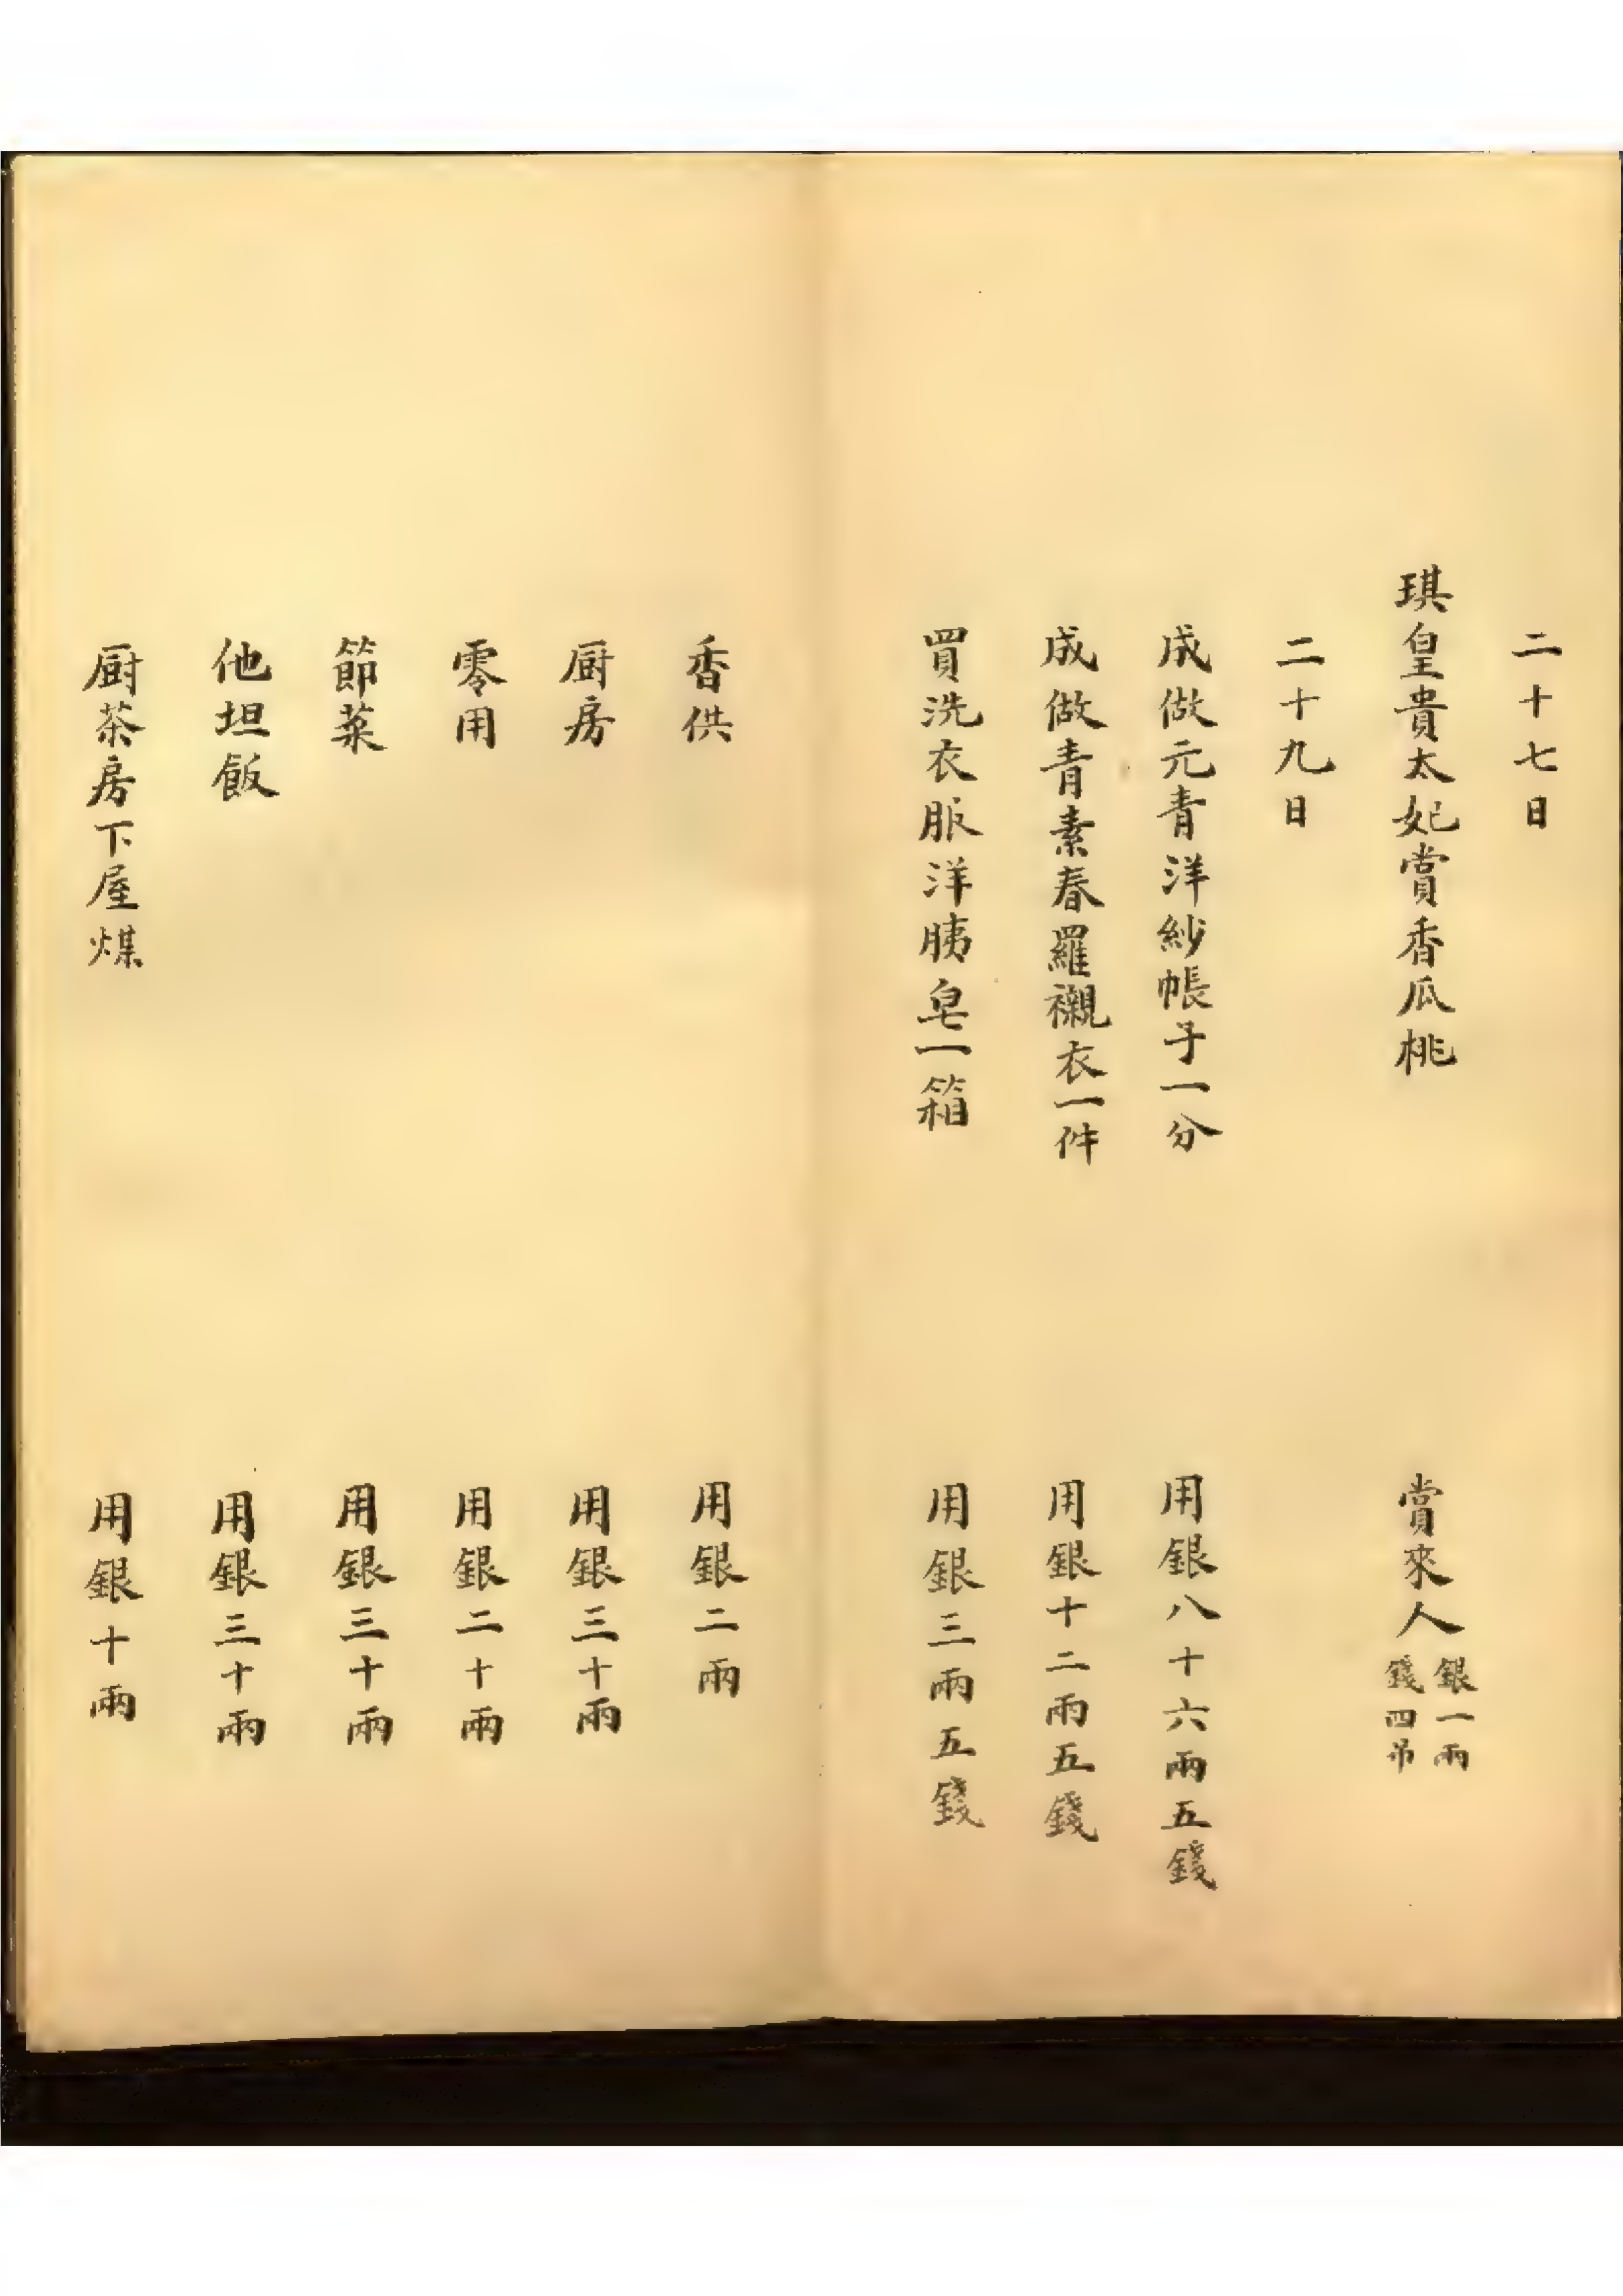 二十七日
琪皇貴太妃賞香瓜桃 賞來人 銀一兩 錢四吊
二十九日
成做元青洋紗帳子一分 用銀八十六兩五錢
成做青素春羅襯衣一件 用銀十二兩五錢
買洗衣服洋胰皂一箱 用銀三兩五錢
香供 用銀二兩
厨房 用銀三十兩
零用 用銀二十兩
節菜 用銀三十兩
他坦飯 用銀三十兩
厨茶房下屋煤 用銀十兩